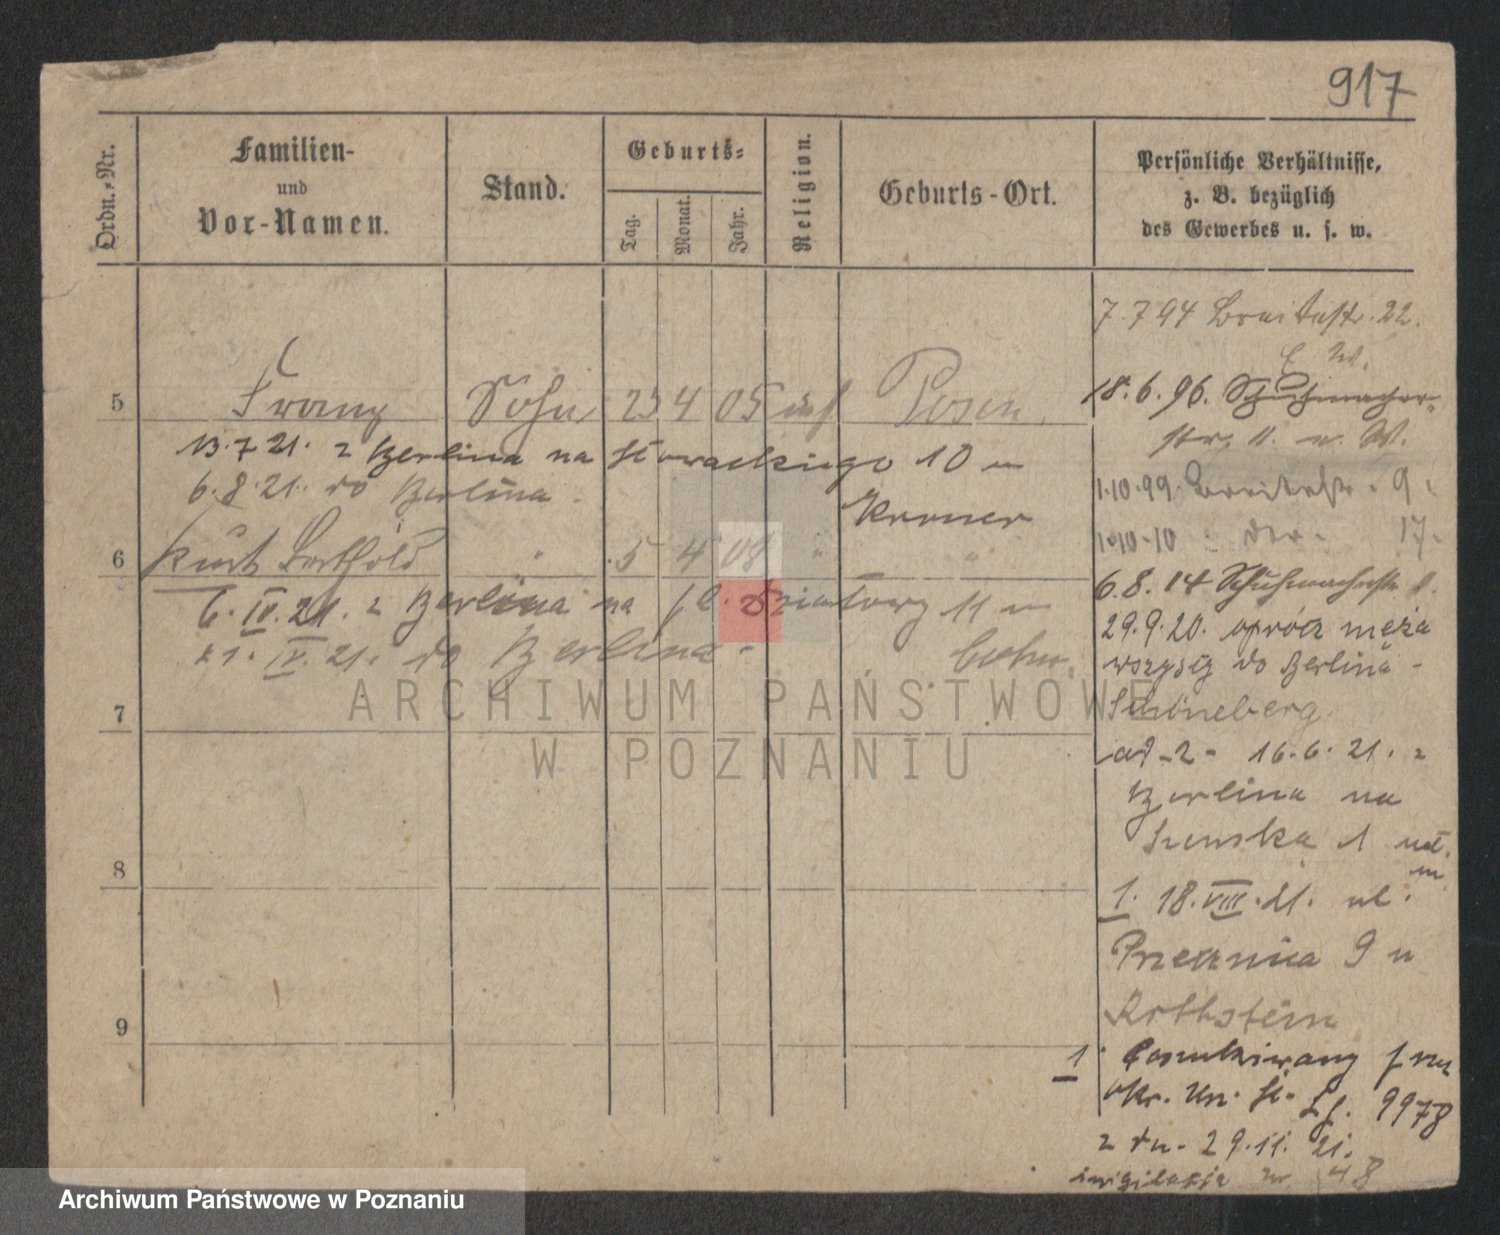 917
Ordn.-Nr.
Familien-
und
Vor-Namen.
Stand.
Geburts-
Tag.
Monat.
Jahr.
Religion.
Geburts-Ort.
Persönliche Verhältnisse,
z. B. bezüglich
des Gewerbes u. s. w.
7.7 94 Breitestr. 22.
18.6.96. Schuhmacher-
str. 11. W.
5 Franz Sohn 25 4 05 Posen
1.10.99 Breitestr. 9.
13.7 21. z Berlina na Słowackiego 10 m
6.8.21. do Berlina.
Kroner
1.10.10 17.
6 Kurt Berthold " 5 4 08 " "
6.8.14 Schuhmacherstr
6.IV.21. z Berlina na pl. Działowy 11 m
29.9.20. oprócz męża
21.IV.21. do Berlina.
Cohn.
wszyscy do Berlina-
Schöneberg.
7
ad-2- 16.6.21. z
Berlina na
1
8
1. 18.VIII.21. ul.
Przecznica 9 u
Rothstein
9
1 Poszukiwany przez
Okr. 9978
z dn. 29.11.21.
inwigilacja 48
ARCHIWUM PAŃSTWOWE
W POZNANIU
Archiwum Państwowe w Poznaniu